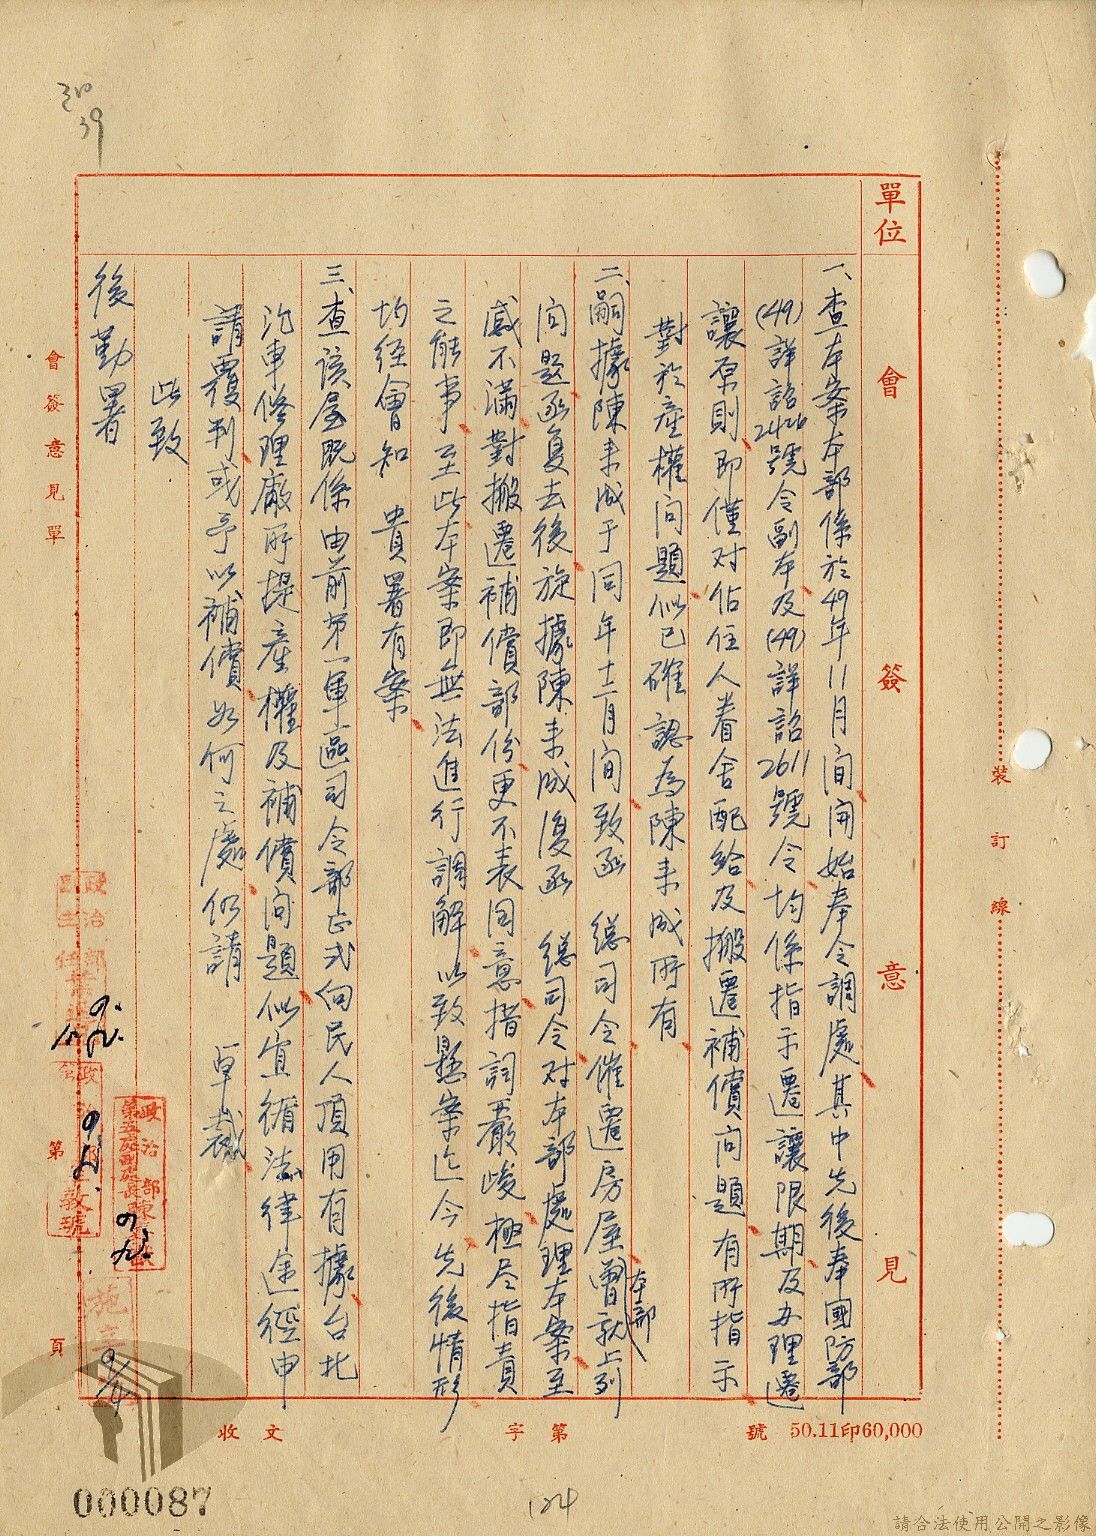 單位
會簽意見
一、查本案本部係於49年11月間開始奉令調處其中先後奉國防部
(49)詳詔2426號令副本及(49)詳詔2611號令均係指示遷讓限期及办理遷
讓原則即僅对佔住人眷舍配給及搬遷補償问題有所指示
對於產權问題似已確認為陳来成所有
二、嗣據陳来成于同年十二月间致函 總司令催遷房屋曾就上列
本部
问題函复去後旋據陳来成復函 總司令对本部處理本案至
感不滿對搬遷補償部份更不表同意措詞嚴峻極尽指責
之能事至此本案即無法進行調解以致懸案迄今先後情形
均经會知 貴署有案
三、查該屋既係由前第一軍區司令部正式向民人頂用有據台北
汽車修理廠所提產權及補償问題似宜循法律途徑申
請覆判或予以補償如何之處仍請 卓裁
此致
後勤署
會簽意見單
第
頁
裝
訂
線
收文
字第
號
50.11印60,000
39
000087
124
請合法使用公開之影像